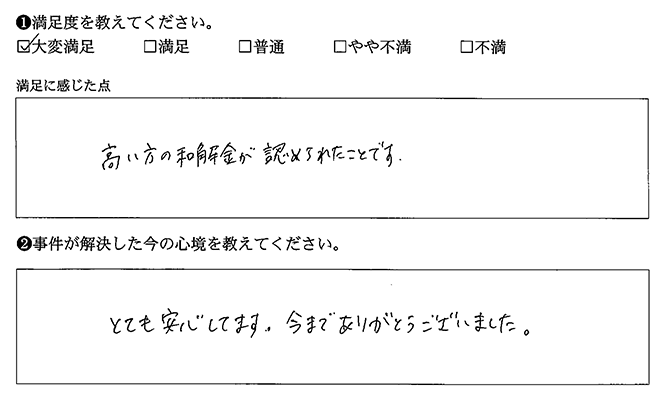 ❶満足度を教えてください。
☑大変満足 □満足 □普通 □やや不満 □不満
満足に感じた点
高い方の和解金が認められたことです.
❷事件が解決した今の心境を教えてください。
とても安心してます。今までありがとうございました。